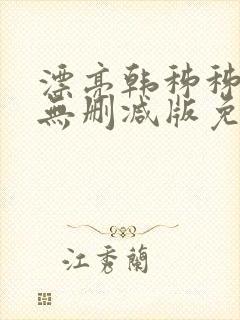 漂亮韩秭秭
無删减版免
江秀蘭